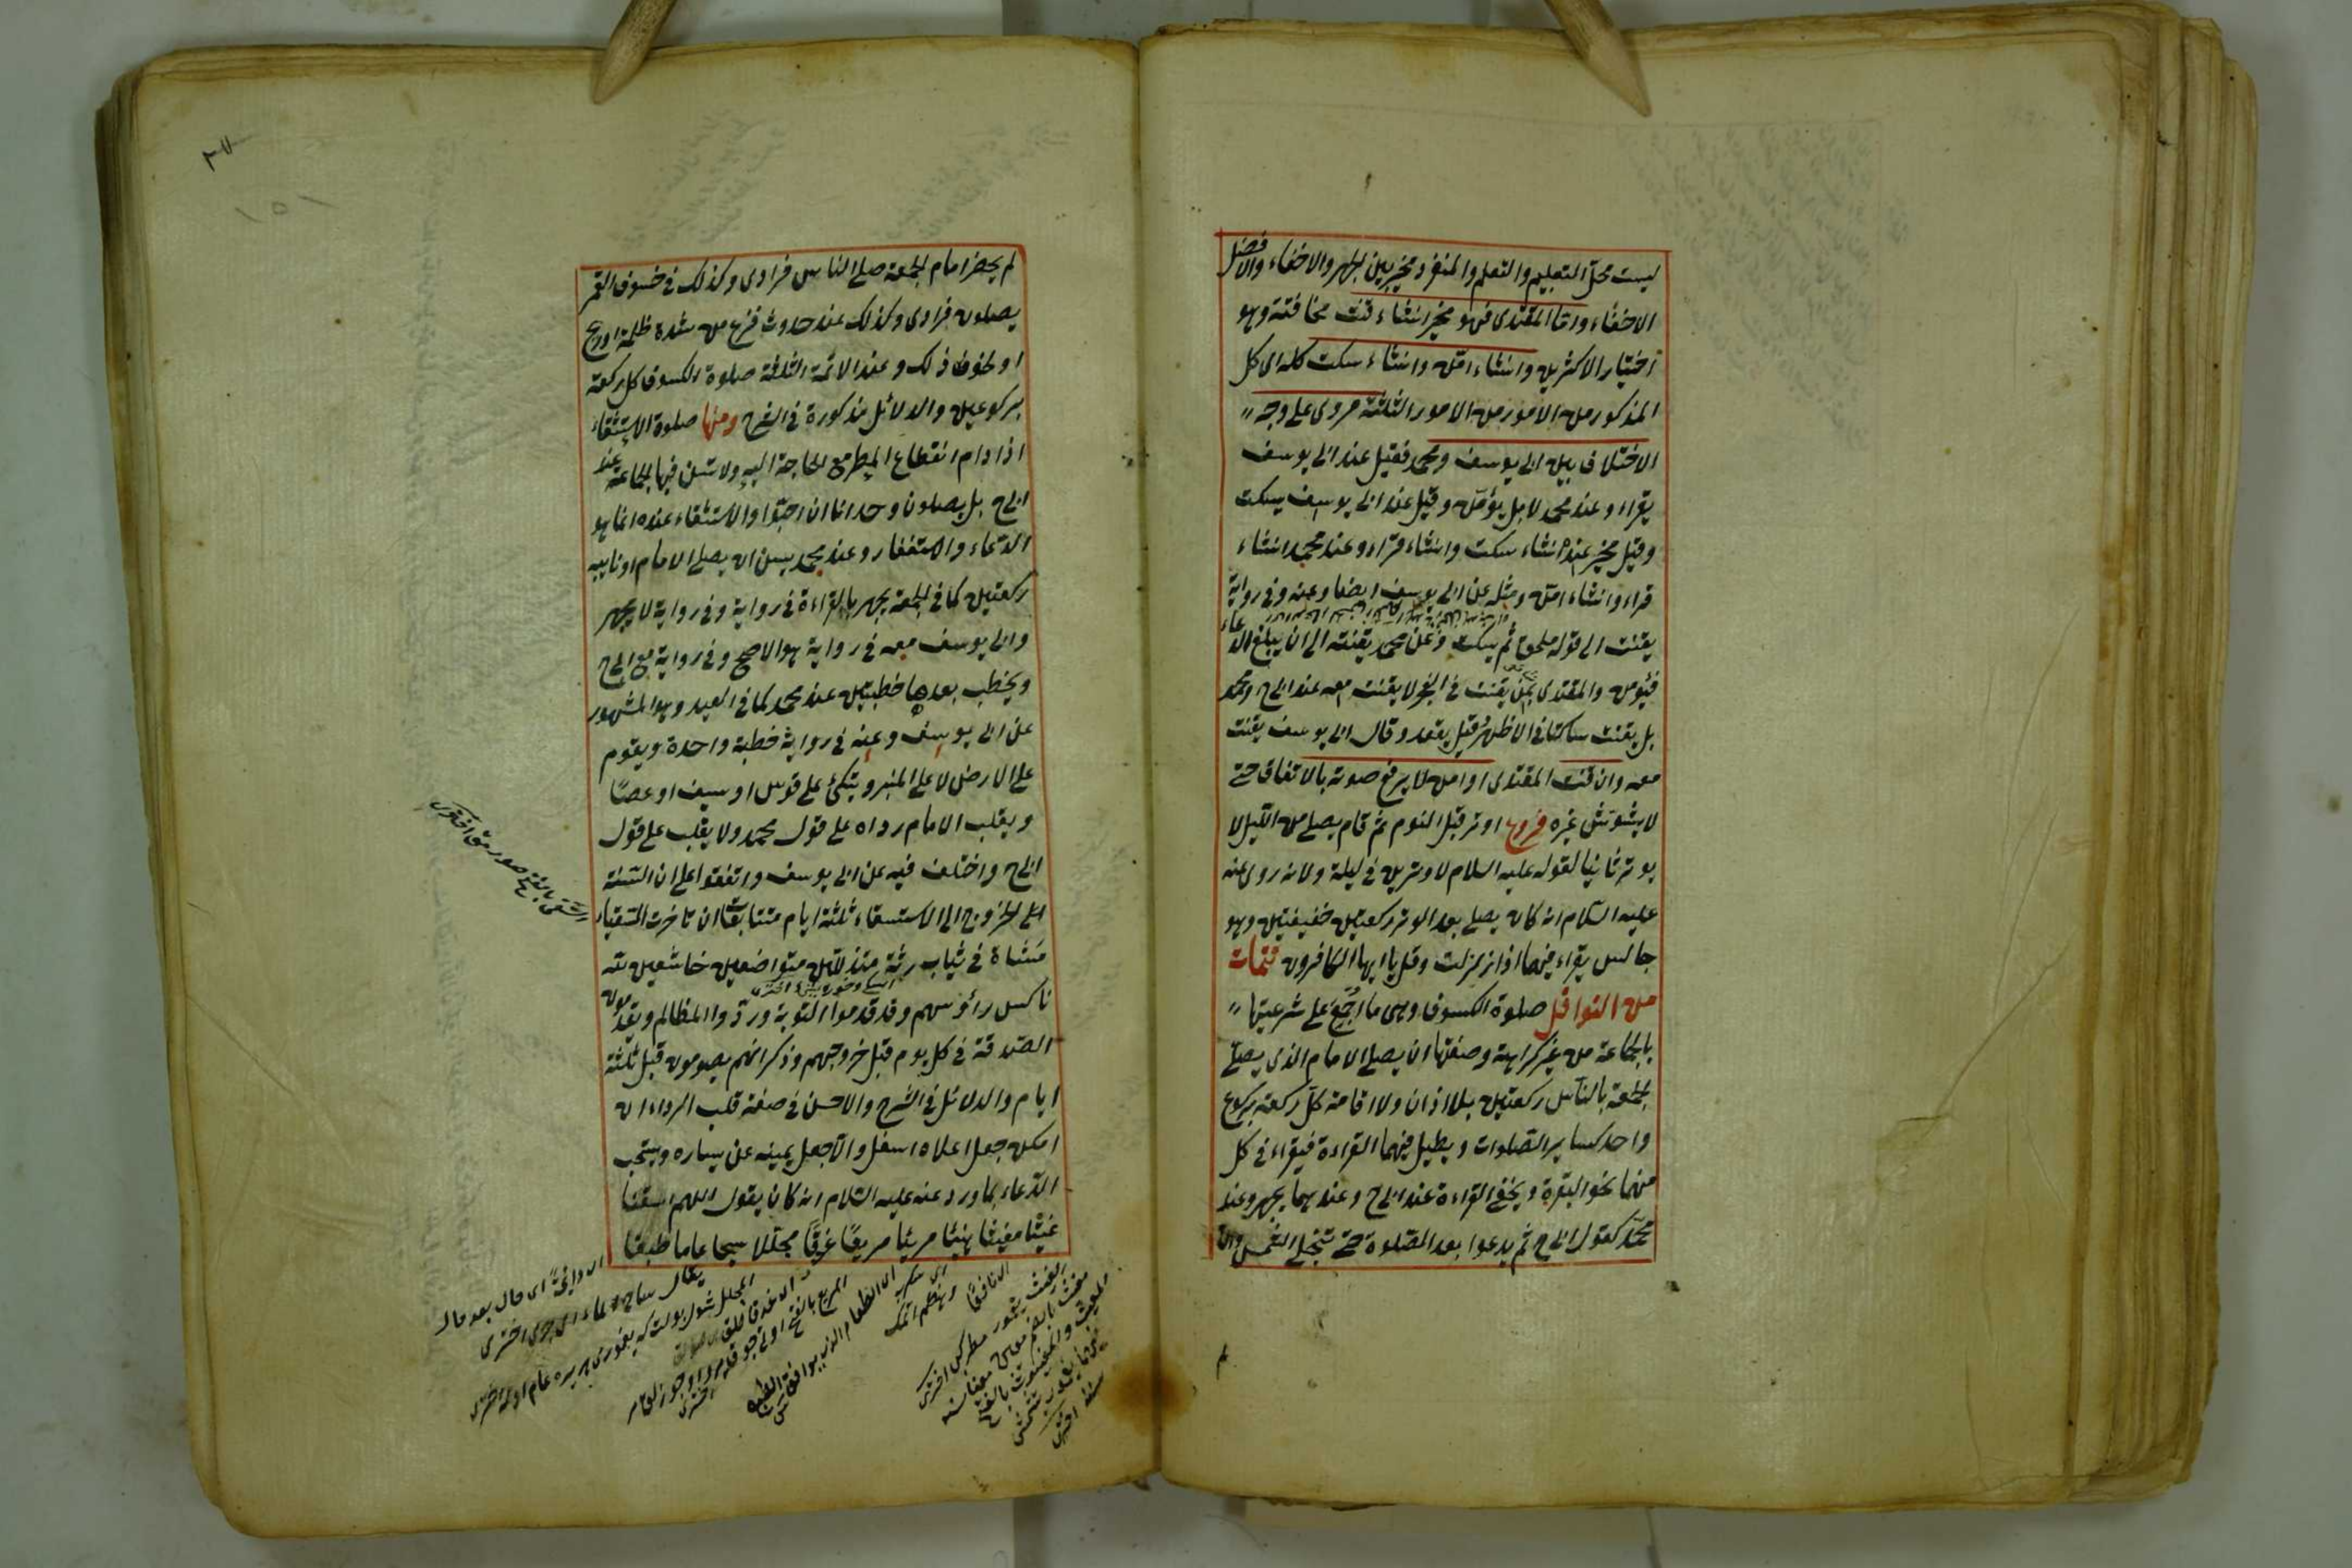 ليست محل التعليم والتعلم والمنفرد مخير بين الجهر والاخفاء والافضل
الاخفاء واما المقتدى فهو مخير ان شاء قنت مخافتة وهو
اختيار الاكثرين وان شاء امّن وان شاء سكت كله اى كل
المذكور من الامور من الامور الثلثة مروى على وجه
الاختلاف بين ابى يوسف ومحمد فقيل عند ابى يوسف
يقراء وعند محمد لا بل يؤمّن وقيل عند ابى يوسف يسكت
وقيل مخير عنده ان شاء سكت وان شاء قراء وعند محمد ان شاء
قراء وان شاء امّن ومثله عن ابى يوسف ايضا وعنه وفى رواية
يقنت الى قوله ملحق ثم يسكت وعن محمد يقنته الى ان يبلغ الدعاء
فيؤمن والمقتدى بمن يقنت فى الفجر لا يقنت معه عند ابى ح ومحمد
بل يقنت ساكتا فى الاظهر وقيل يقعد وقال ابى يوسف يقنت
معه وان قنت المقتدى او امن لا يرفع صوته بالاتفاق حتى
لا يشوش غيره فروع اوتر قبل النوم ثم قام يصلى من الليل لا
يوتر ثانيا لقوله عليه السلام لا وترين فى ليلة ولانه روى عنه
عليه السلام انه كان يصلى بعد الوتر ركعتين خفيفتين وهو
جالس يقراء فيهما اذا زلزلت وقل يا ايها الكافرون تتمات
من النوافل صلوة الكسوف وهى ما اجمع على شرعيتها
بالجماعة من غير كراهة وصفتها ان يصلى الامام الذى يصلى
الجمعة بالناس ركعتين بلا اذان ولا اقامة كل ركعة بركوع
واحد كسائر الصلوات ويطيل فيهما القراءة فيقراء فى كل
منهما نحو البقرة ويخفى القراءة عند ابى ح وعندهما يجهر وعند
محمد كقول ابى ح ثم يدعوا بعد الصلوة حتى تنجلى الشمس وان
لم يحضر امام الجمعة صلى الناس فرادى وكذلك فى خسوف القمر
يصلون فرادى وكذلك عند حدوث فزع من شدة ظلمة او ريح
او لخوف ذلك وعند الائمة الثلثة صلوة الكسوف كل ركعة
بركوعين والدلائل مذكورة فى الشرح ومنها صلوة الاستسقاء
اذا دام انقطاع المطر مع الحاجة اليه ولا تسن فيها الجماعة عند
ابى ح بل يصلون وحدانا ان احبوا والاستسقاء عنده انما هو
الدعاء والاستغفار وعند محمد يسن ان يصلى الامام او نايبه
ركعتين كما فى الجمعة يجهر بالقراءة فى رواية وفى رواية لا يجهر
وابى يوسف معه فى رواية هو الاصح وفى رواية مع ابى ح
ويخطب بعدها خطبتين عند محمد كما فى العيد وهو المشهور
عن ابى يوسف وعنه فى رواية خطبة واحدة ويقوم
على الارض لا على المنبر ويتكئ على قوس او سيف او عصا
ويقلب الامام رداه على قول محمد ولا يقلب على قول
ابى ح واختلف فيه عن ابى يوسف واتفقوا على ان السنة
الخروج الى الاستسقاء ثلثة ايام متتابعات ان تاخرت السقيا
مشاة فى ثياب رثة متذللين متواضعين خاشعين لله
ناكس رأوسهم وقد قدموا التوبة وردوا المظالم ويقدمون
الصدقة فى كل يوم قبل خروجهم وذكر انهم يصومون قبل ثلثة
ايام والدلائل فى الشرح والاحسن فى صفة قلب الرداء ان
امكن جعل اعلاه اسفل والا جعل يمينه عن يساره ويستحب
الدعاء بما ورد عنه عليه السلام انه كان يقول اللهم اسقنا
غيثا مغيثا هنيئا مريئا مريعا غدقا مجللا سحا عاما طبقا